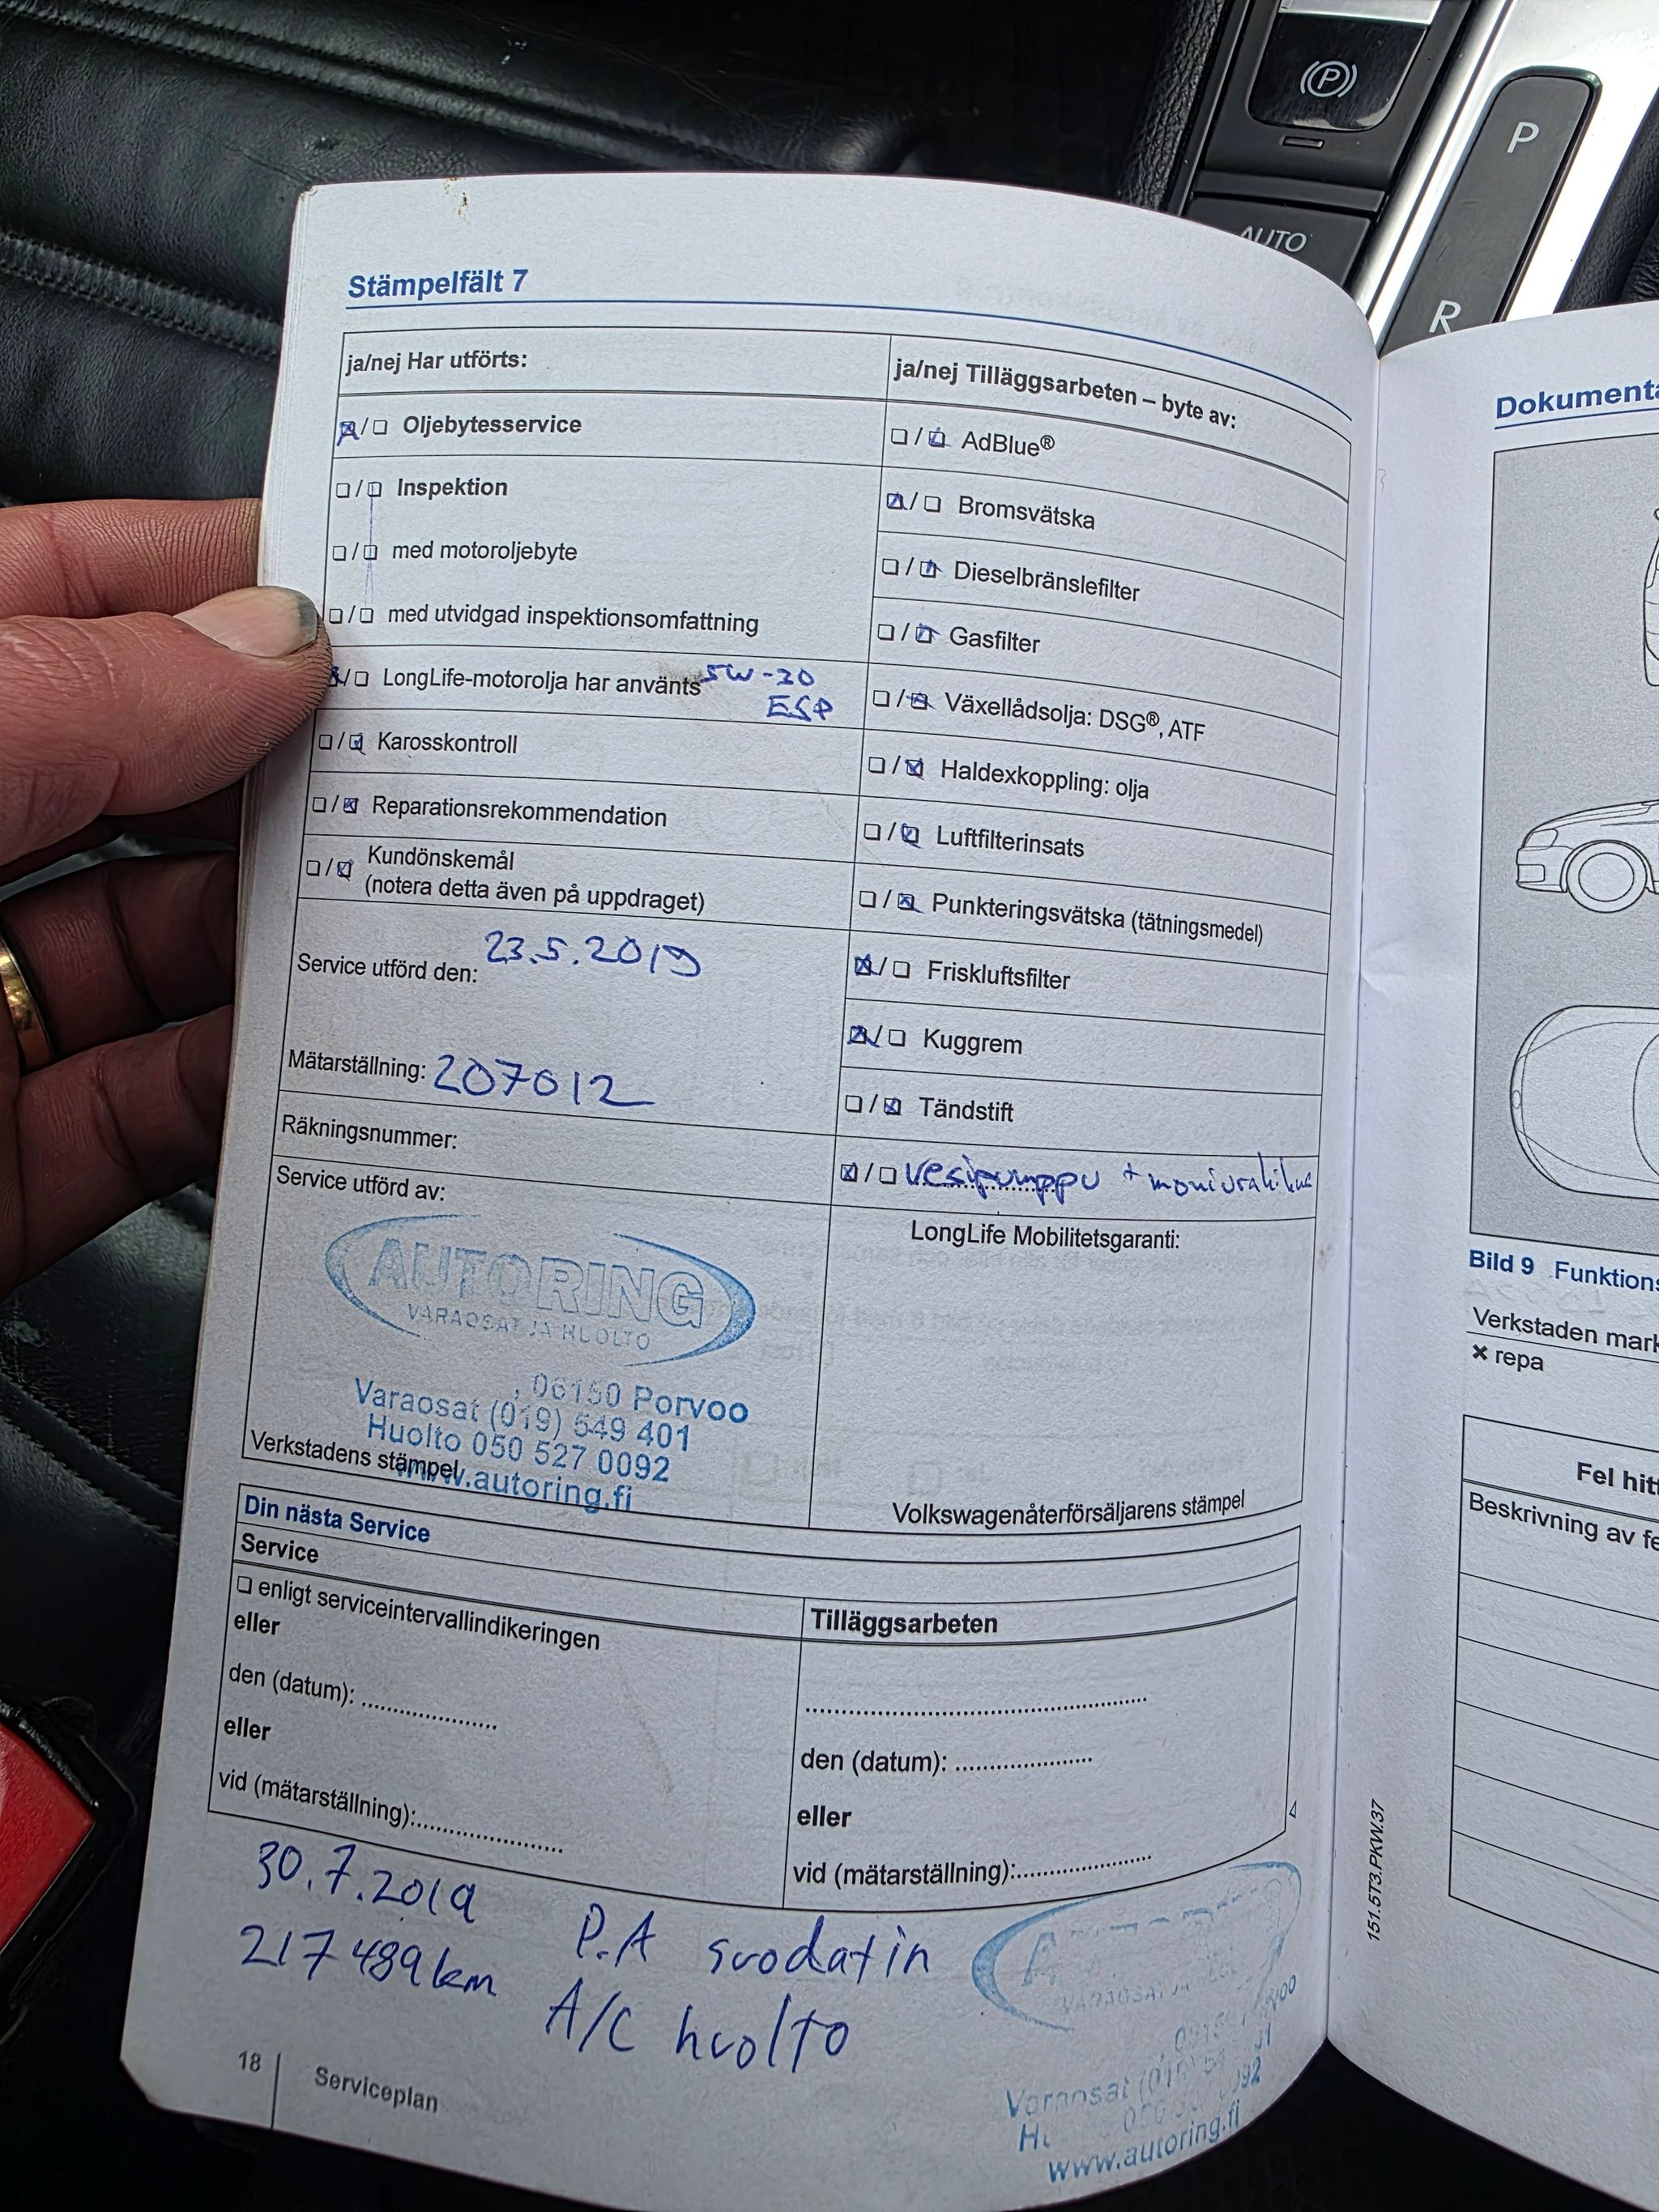 P
AUTO
P
R
Stämpelfält 7
ja/nej Har utförts:
/ Oljebytesservice
/ Inspektion
/ med motoroljebyte
/ med utvidgad inspektionsomfattning
/ LongLife-motorolja har använts 5W-30
ESP
/ Karosskontroll
/ Reparationsrekommendation
/ Kundönskemål
(notera detta även på uppdraget)
Service utförd den: 23.5.2019
Mätarställning: 207012
Räkningsnummer:
Service utförd av:
AUTORING
VARAOSAT JA HUOLTO
, 06150 Porvoo
Varaosat (019) 549 401
Huolto 050 527 0092
www.autoring.fi
Verkstadens stämpel
ja/nej Tilläggsarbeten – byte av:
/ AdBlue®
/ Bromsvätska
/ Dieselbränslefilter
/ Gasfilter
/ Växellådsolja: DSG®, ATF
/ Haldexkoppling: olja
/ Luftfilterinsats
/ Punkteringsvätska (tätningsmedel)
/ Friskluftsfilter
/ Kuggrem
/ Tändstift
/ Vesipumppu + moniurahihna
LongLife Mobilitetsgaranti:
Volkswagenåterförsäljarens stämpel
Din nästa Service
Service
enligt serviceintervallindikeringen
eller
den (datum): ....................
eller
vid (mätarställning):....................
Tilläggsarbeten
..................................................
den (datum): ....................
eller
vid (mätarställning):....................
30.7.2019
217489km
P.A suodatin
A/C huolto
Varaosat
www.autoring.fi
18 Serviceplan
151.5T3.PKW.37
Dokumenta
Bild 9 Funktions
Verkstaden mark
× repa
Fel hitt
Beskrivning av fe